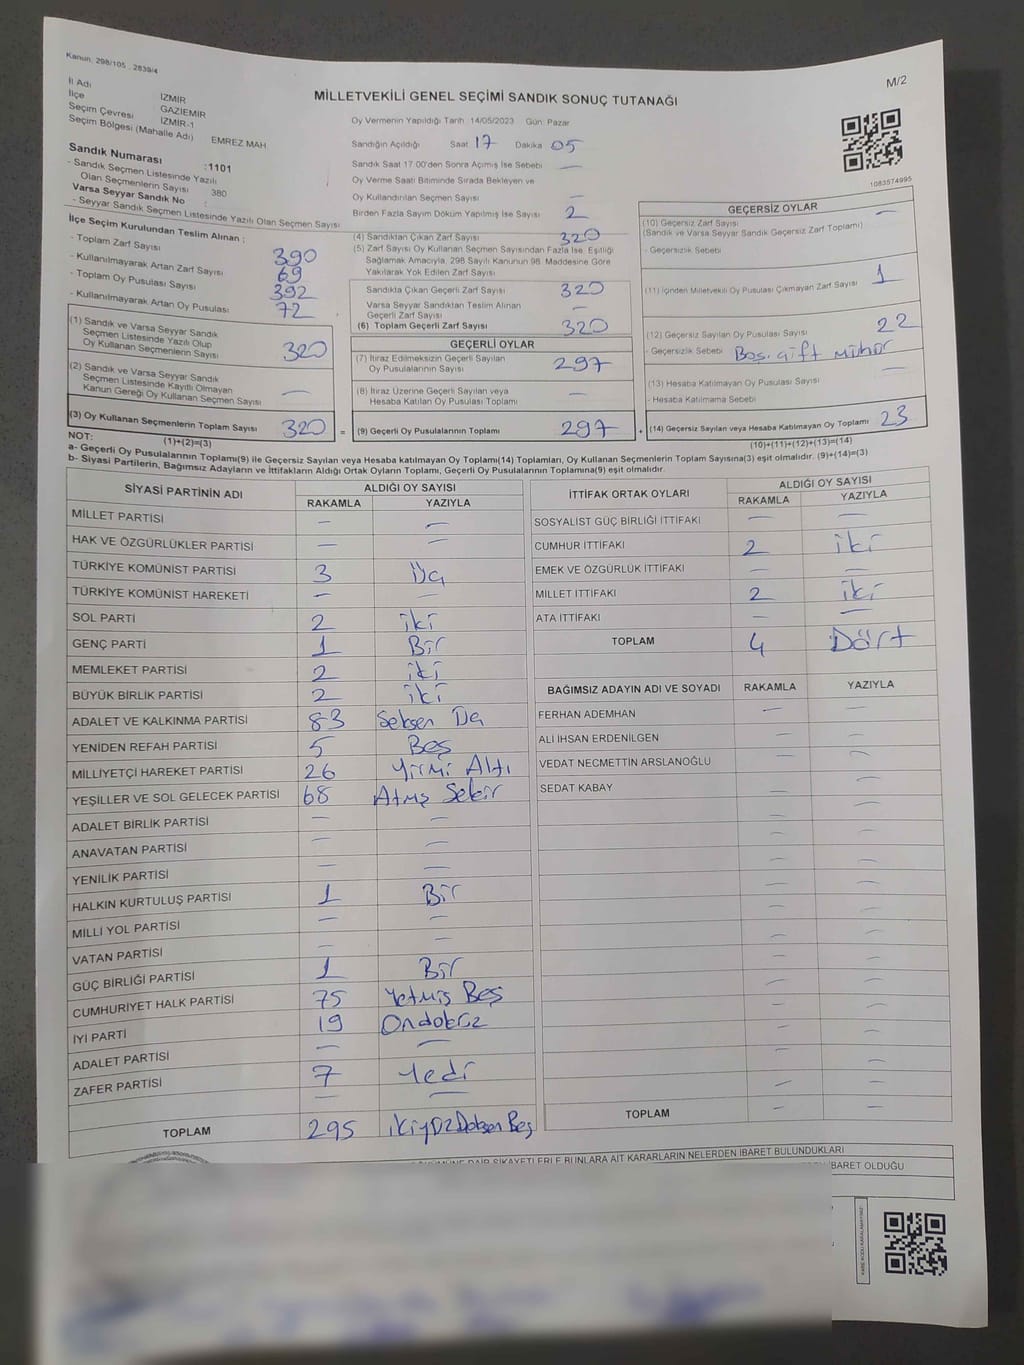 Kanun, 298/105 , 2839/4
M/2
İl Adı İZMİR
İlçe GAZİEMİR
Seçim Çevresi İZMİR-1
Seçim Bölgesi (Mahalle Adı) EMREZ MAH
Sandık Numarası :1101
- Sandık Seçmen Listesinde Yazılı
Olan Seçmenlerin Sayısı 380
Varsa Seyyar Sandık No :
- Seyyar Sandık Seçmen Listesinde Yazılı Olan Seçmen Sayısı
MİLLETVEKİLİ GENEL SEÇİMİ SANDIK SONUÇ TUTANAĞI
Oy Vermenin Yapıldığı Tarih: 14/05/2023 Gün: Pazar
Sandığın Açıldığı Saat 17 Dakika 05
Sandık Saat 17.00'den Sonra Açılmış İse Sebebi —
Oy Verme Saati Bitiminde Sırada Bekleyen ve
Oy Kullandırılan Seçmen Sayısı —
Birden Fazla Sayım Döküm Yapılmış İse Sayısı 2
1083574995
İlçe Seçim Kurulundan Teslim Alınan ;
- Toplam Zarf Sayısı 390
- Kullanılmayarak Artan Zarf Sayısı 69
- Toplam Oy Pusulası Sayısı 392
- Kullanılmayarak Artan Oy Pusulası 72
(1) Sandık ve Varsa Seyyar Sandık
Seçmen Listesinde Yazılı Olup
Oy Kullanan Seçmenlerin Sayısı 320
(2) Sandık ve Varsa Seyyar Sandık
Seçmen Listesinde Kayıtlı Olmayan
Kanun Gereği Oy Kullanan Seçmen Sayısı —
(3) Oy Kullanan Seçmenlerin Toplam Sayısı 320 =
(1)+(2)=(3)
(4) Sandıktan Çıkan Zarf Sayısı 320
(5) Zarf Sayısı Oy Kullanan Seçmen Sayısından Fazla İse, Eşitliği
Sağlamak Amacıyla, 298 Sayılı Kanunun 98. Maddesine Göre
Yakılarak Yok Edilen Zarf Sayısı
Sandıkta Çıkan Geçerli Zarf Sayısı 320
Varsa Seyyar Sandıktan Teslim Alınan
Geçerli Zarf Sayısı —
(6) Toplam Geçerli Zarf Sayısı 320
GEÇERLİ OYLAR
(7) İtiraz Edilmeksizin Geçerli Sayılan
Oy Pusulalarının Sayısı 297
(8) İtiraz Üzerine Geçerli Sayılan veya
Hesaba Katılan Oy Pusulası Toplamı —
(9) Geçerli Oy Pusulalarının Toplamı 297 +
GEÇERSİZ OYLAR
(10) Geçersiz Zarf Sayısı —
(Sandık ve Varsa Seyyar Sandık Geçersiz Zarf Toplamı)
- Geçersizlik Sebebi
(11) İçinden Milletvekili Oy Pusulası Çıkmayan Zarf Sayısı 1
(12) Geçersiz Sayılan Oy Pusulası Sayısı 22
- Geçersizlik Sebebi Boş. çift mühür
(13) Hesaba Katılmayan Oy Pusulası Sayısı —
- Hesaba Katılmama Sebebi
(14) Geçersiz Sayılan veya Hesaba Katılmayan Oy Toplamı 23
(10)+(11)+(12)+(13)=(14)
NOT:
a- Geçerli Oy Pusulalarının Toplamı(9) ile Geçersiz Sayılan veya Hesaba katılmayan Oy Toplamı(14) Toplamları, Oy Kullanan Seçmenlerin Toplam Sayısına(3) eşit olmalıdır. (9)+(14)=(3)
b- Siyasi Partilerin, Bağımsız Adayların ve İttifakların Aldığı Ortak Oyların Toplamı, Geçerli Oy Pusulalarının Toplamına(9) eşit olmalıdır.
SİYASİ PARTİNİN ADI ALDIĞI OY SAYISI
RAKAMLA YAZIYLA
MİLLET PARTİSİ — —
HAK VE ÖZGÜRLÜKLER PARTİSİ — —
TÜRKİYE KOMÜNİST PARTİSİ 3 Üç
TÜRKİYE KOMÜNİST HAREKETİ — —
SOL PARTİ 2 iki
GENÇ PARTİ 1 Bir
MEMLEKET PARTİSİ 2 iki
BÜYÜK BİRLİK PARTİSİ 2 iki
ADALET VE KALKINMA PARTİSİ 83 Seksen Üç
YENİDEN REFAH PARTİSİ 5 Beş
MİLLİYETÇİ HAREKET PARTİSİ 26 Yirmi Altı
YEŞİLLER VE SOL GELECEK PARTİSİ 68 Atmış Sekiz
ADALET BİRLİK PARTİSİ — —
ANAVATAN PARTİSİ — —
YENİLİK PARTİSİ — —
HALKIN KURTULUŞ PARTİSİ 1 Bir
MİLLİ YOL PARTİSİ — —
VATAN PARTİSİ — —
GÜÇ BİRLİĞİ PARTİSİ 1 Bir
CUMHURİYET HALK PARTİSİ 75 Yetmiş Beş
İYİ PARTİ 19 Ondokuz
ADALET PARTİSİ — —
ZAFER PARTİSİ 7 Yedi
— —
TOPLAM 295 ikiyüzDoksan Beş
İTTİFAK ORTAK OYLARI ALDIĞI OY SAYISI
RAKAMLA YAZIYLA
SOSYALİST GÜÇ BİRLİĞİ İTTİFAKI — —
CUMHUR İTTİFAKI 2 iki
EMEK VE ÖZGÜRLÜK İTTİFAKI — —
MİLLET İTTİFAKI 2 iki
ATA İTTİFAKI — —
TOPLAM 4 Dört
BAĞIMSIZ ADAYIN ADI VE SOYADI RAKAMLA YAZIYLA
FERHAN ADEMHAN — —
ALİ İHSAN ERDENİLGEN — —
VEDAT NECMETTİN ARSLANOĞLU — —
SEDAT KABAY — —
TOPLAM — —
DAİR ŞİKAYETLERLE BUNLARA AİT KARARLARIN NELERDEN İBARET BULUNDUKLARI
İBARET OLDUĞU
KARE KODU KARALAMAYINIZ!